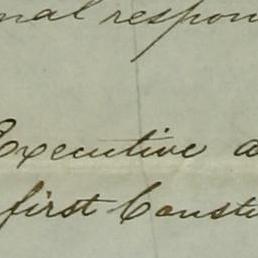 nal respon
Executive a
first Constu